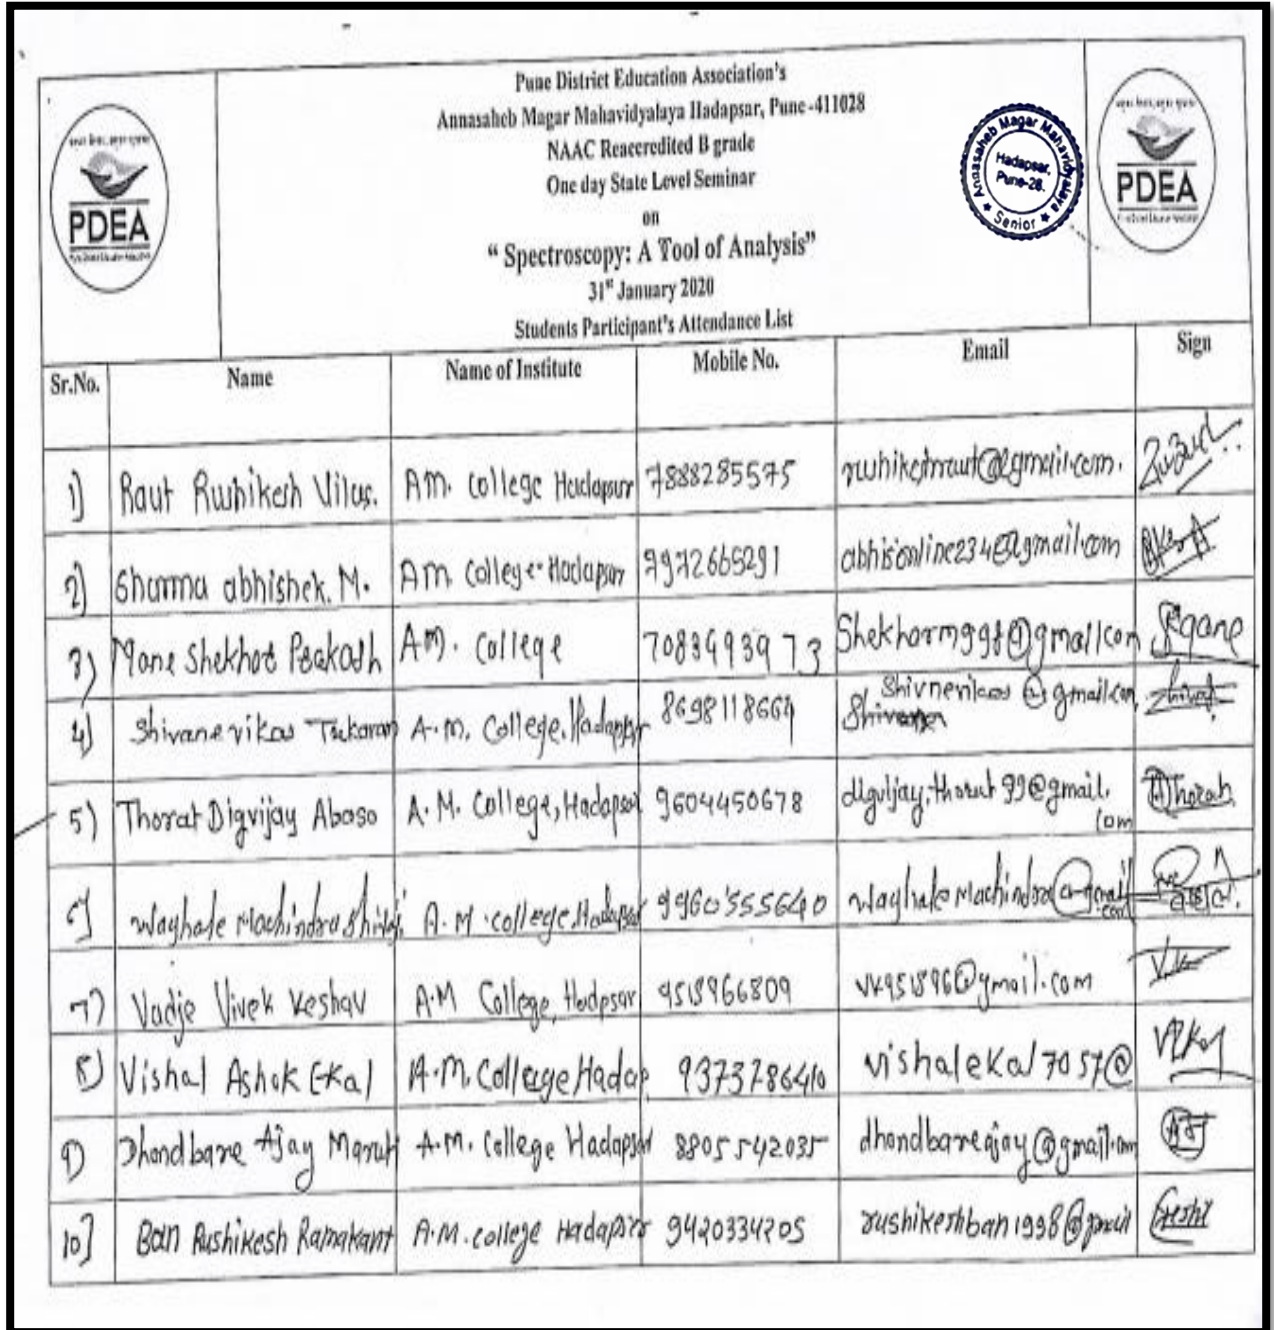 Pune District Education Association's
Annasaheb Magar Mahavidyalaya Hadapsar, Pune-411028
NAAC Reaccredited B grade
One day State Level Seminar
on
“ Spectroscopy: A Tool of Analysis”
31st January 2020
Students Participant's Attendance List
PDEA
Annasaheb Magar Mahavidyalaya
Hadapsar,
Pune-28.
★ Senior ★
PDEA
Sr.No. Name Name of Institute Mobile No. Email Sign
1) Raut Rushikesh Vilas. AM. College Hadapsar 7888285575 rushikeshraut@gmail.com.
2) Sharma abhishek. M. AM College Hadapsar 7972665291 abhisonline234@gmail.com
3) Mane Shekhar Prakash AM. College 7083493973 Shekharm998@gmail.com
4) Shivane vikas Tukaram A.M. College, Hadapsar 8698118664 Shivnevikas@gmail.com
5) Thorat Digvijay Abaso A.M. College, Hadapsar 9604450678 digvijay.thorat99@gmail.
com Thorat
6) Waghale Machindra Shivaji A.M. college, Hadapsar 9960555640 WaghaleMachindra@gmail
.com
7) Vadje Vivek Keshav A.M College, Hadpsar 9518966809 vk951896@gmail.com
8) Vishal Ashok Ekal A.M. Colleage, Hadap 9373786410 vishalekal7057@
9) Dhondbare Ajay Maruti A.M. College Hadapsar 8805542035 dhondbareajay@gmail.com
10] Ban Rushikesh Ramakant A.M. college Hadapsar 9420334205 rushikeshban1998@gmail